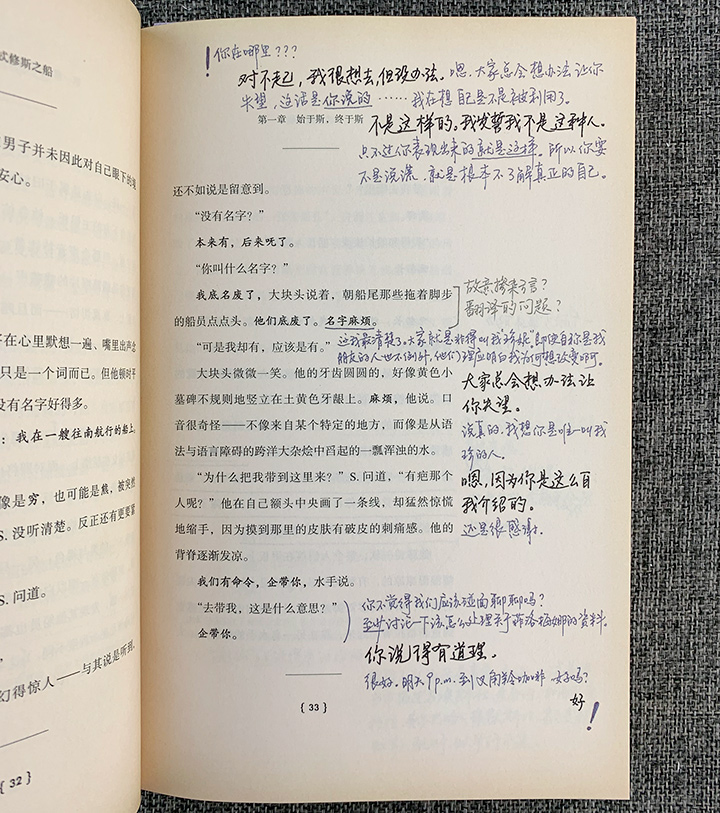 忒修斯之船
男子并未因此对自己眼下的境
安心。
在心里默想一遍、嘴里出声念
只是一个词而已。但他顿时平
没有名字好得多。
：我在一艘往南航行的船上，
像是穷，也可能是焦，被突然
S. 没听清楚。反正还有更要紧
S. 问道。
幻得惊人——与其说是听到，
{ 32 }
! 你在哪里？？？
对不起，我很想去，但没办法。嗯，大家总会想办法让你
失望，这话是你说的……我在想自己是不是被利用了。
第一章 始于斯，终于斯
不是这样的。我发誓我不是这种人。
只不过你表现出来的就是这样。所以你要
不是说谎，就是根本不了解真正的自己。
还不如说是留意到。
“没有名字？”
本来有，后来呒了。
“你叫什么名字？”
我底名废了，大块头说着，朝船尾那些拖着脚步
的船员点点头。他们底废了。名字麻烦。
故意掺杂方言？
翻译的问题？
“可是我却有，应该是有。”
这我最清楚了。大家就是非得叫我“珍妮”，即使自称是我
朋友的人也不例外，他们理应明白我为何想改变啊。
大块头微微一笑。他的牙齿圆圆的，好像黄色小
墓碑不规则地竖立在土黄色牙龈上。麻烦，他说。口
音很奇怪——不像来自某个特定的地方，而像是从语
法与语言障碍的跨洋大杂烩中舀起的一瓢浑浊的水。
大家总会想办法让
你失望。
说真的，我想你是唯一叫我
珍的人。
“为什么把我带到这里来？”S. 问道，“有疤那个
人呢？”他在自己额头中央画了一条线，却猛然惊慌
地缩手，因为摸到那里的皮肤有破皮的刺痛感。他的
背脊逐渐发凉。
嗯，因为你是这么自
我介绍的。
还是很感谢。
我们有命令，企带你，水手说。
“去带我，这是什么意思？”
企带你。
你不觉得我们应该碰面聊聊吗？
至少讨论一下该怎么处理关于菲洛梅娜的资料。
你说得有道理。
很好。明天9 p.m. 到
咖啡 好吗？
好
!
{ 33 }